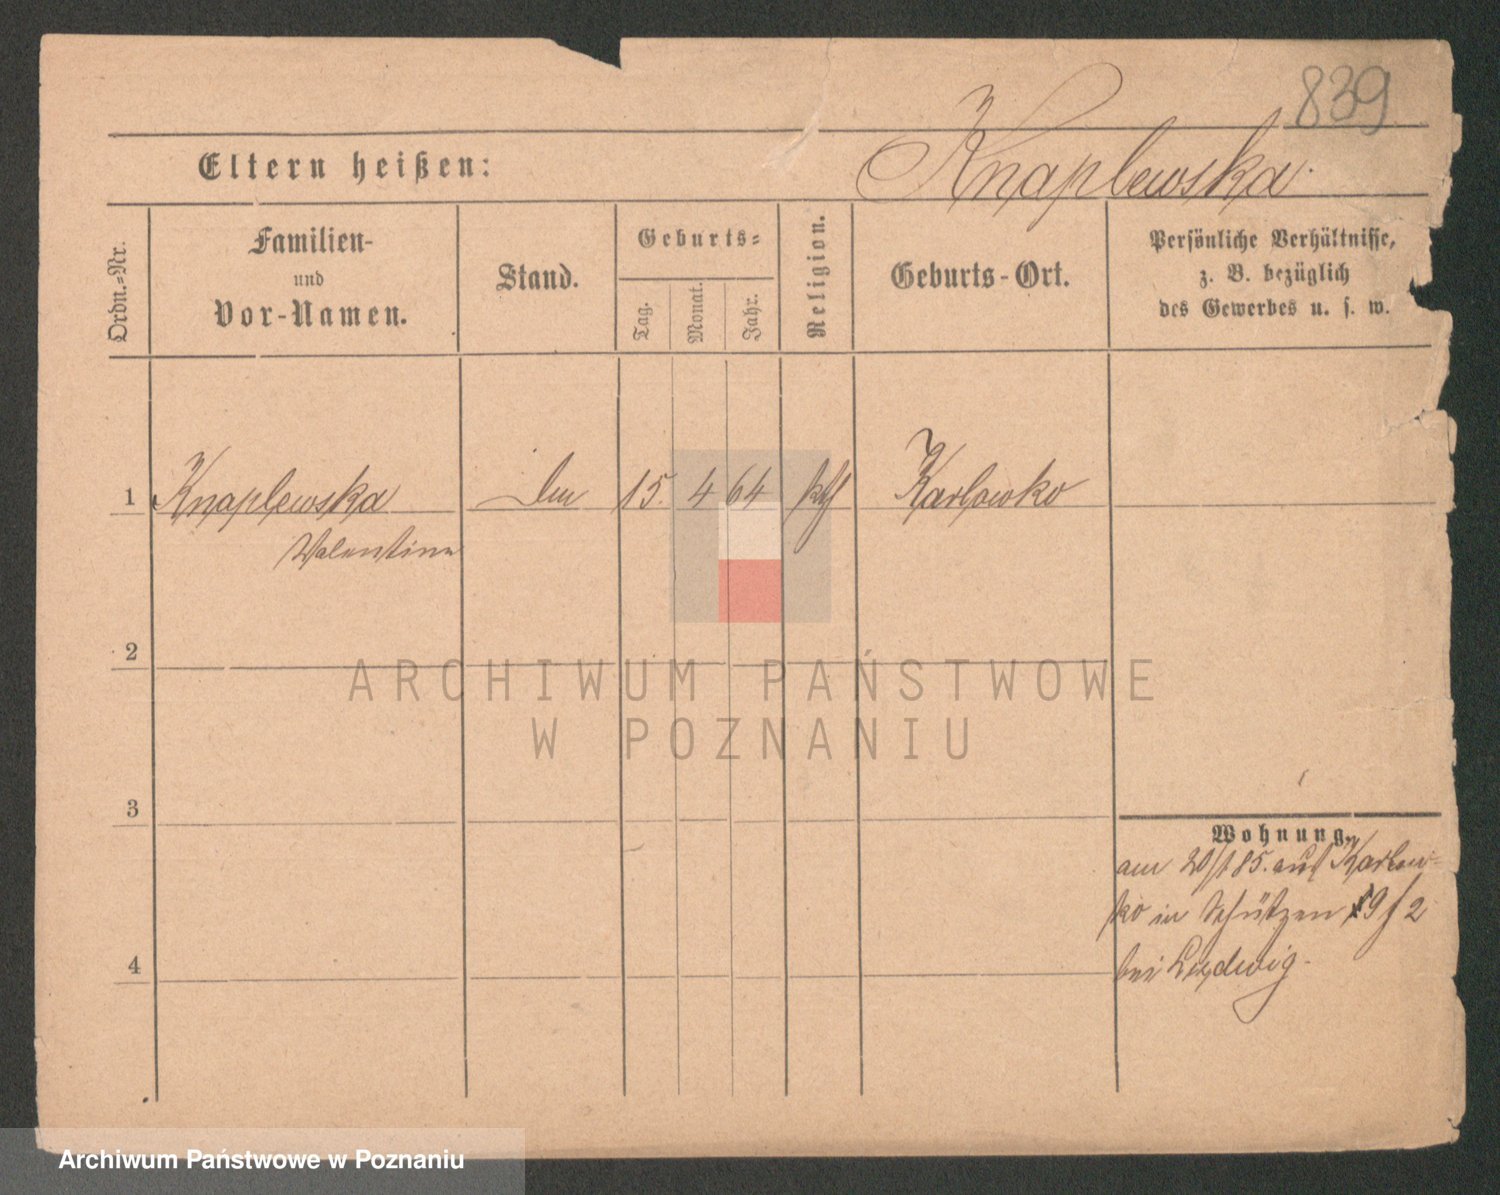 839
Knaplewska
Eltern heißen:
Ordn.-Nr.
Familien-
und
Vor-Namen.
Stand.
Geburts-
Tag.
Monat.
Jahr.
Religion.
Geburts-Ort.
Persönliche Verhältnisse,
z. B. bezüglich
des Gewerbes u. s. w.
1 Knaplewska 15. 4 64 kth Karlowko
Valentine
2
3
4
Wohnung.
am 20/1 85. aus Karlow-
ko in Schützen 19 / 2
bei Ludwig.
ARCHIWUM PAŃSTWOWE
W POZNANIU
Archiwum Państwowe w Poznaniu